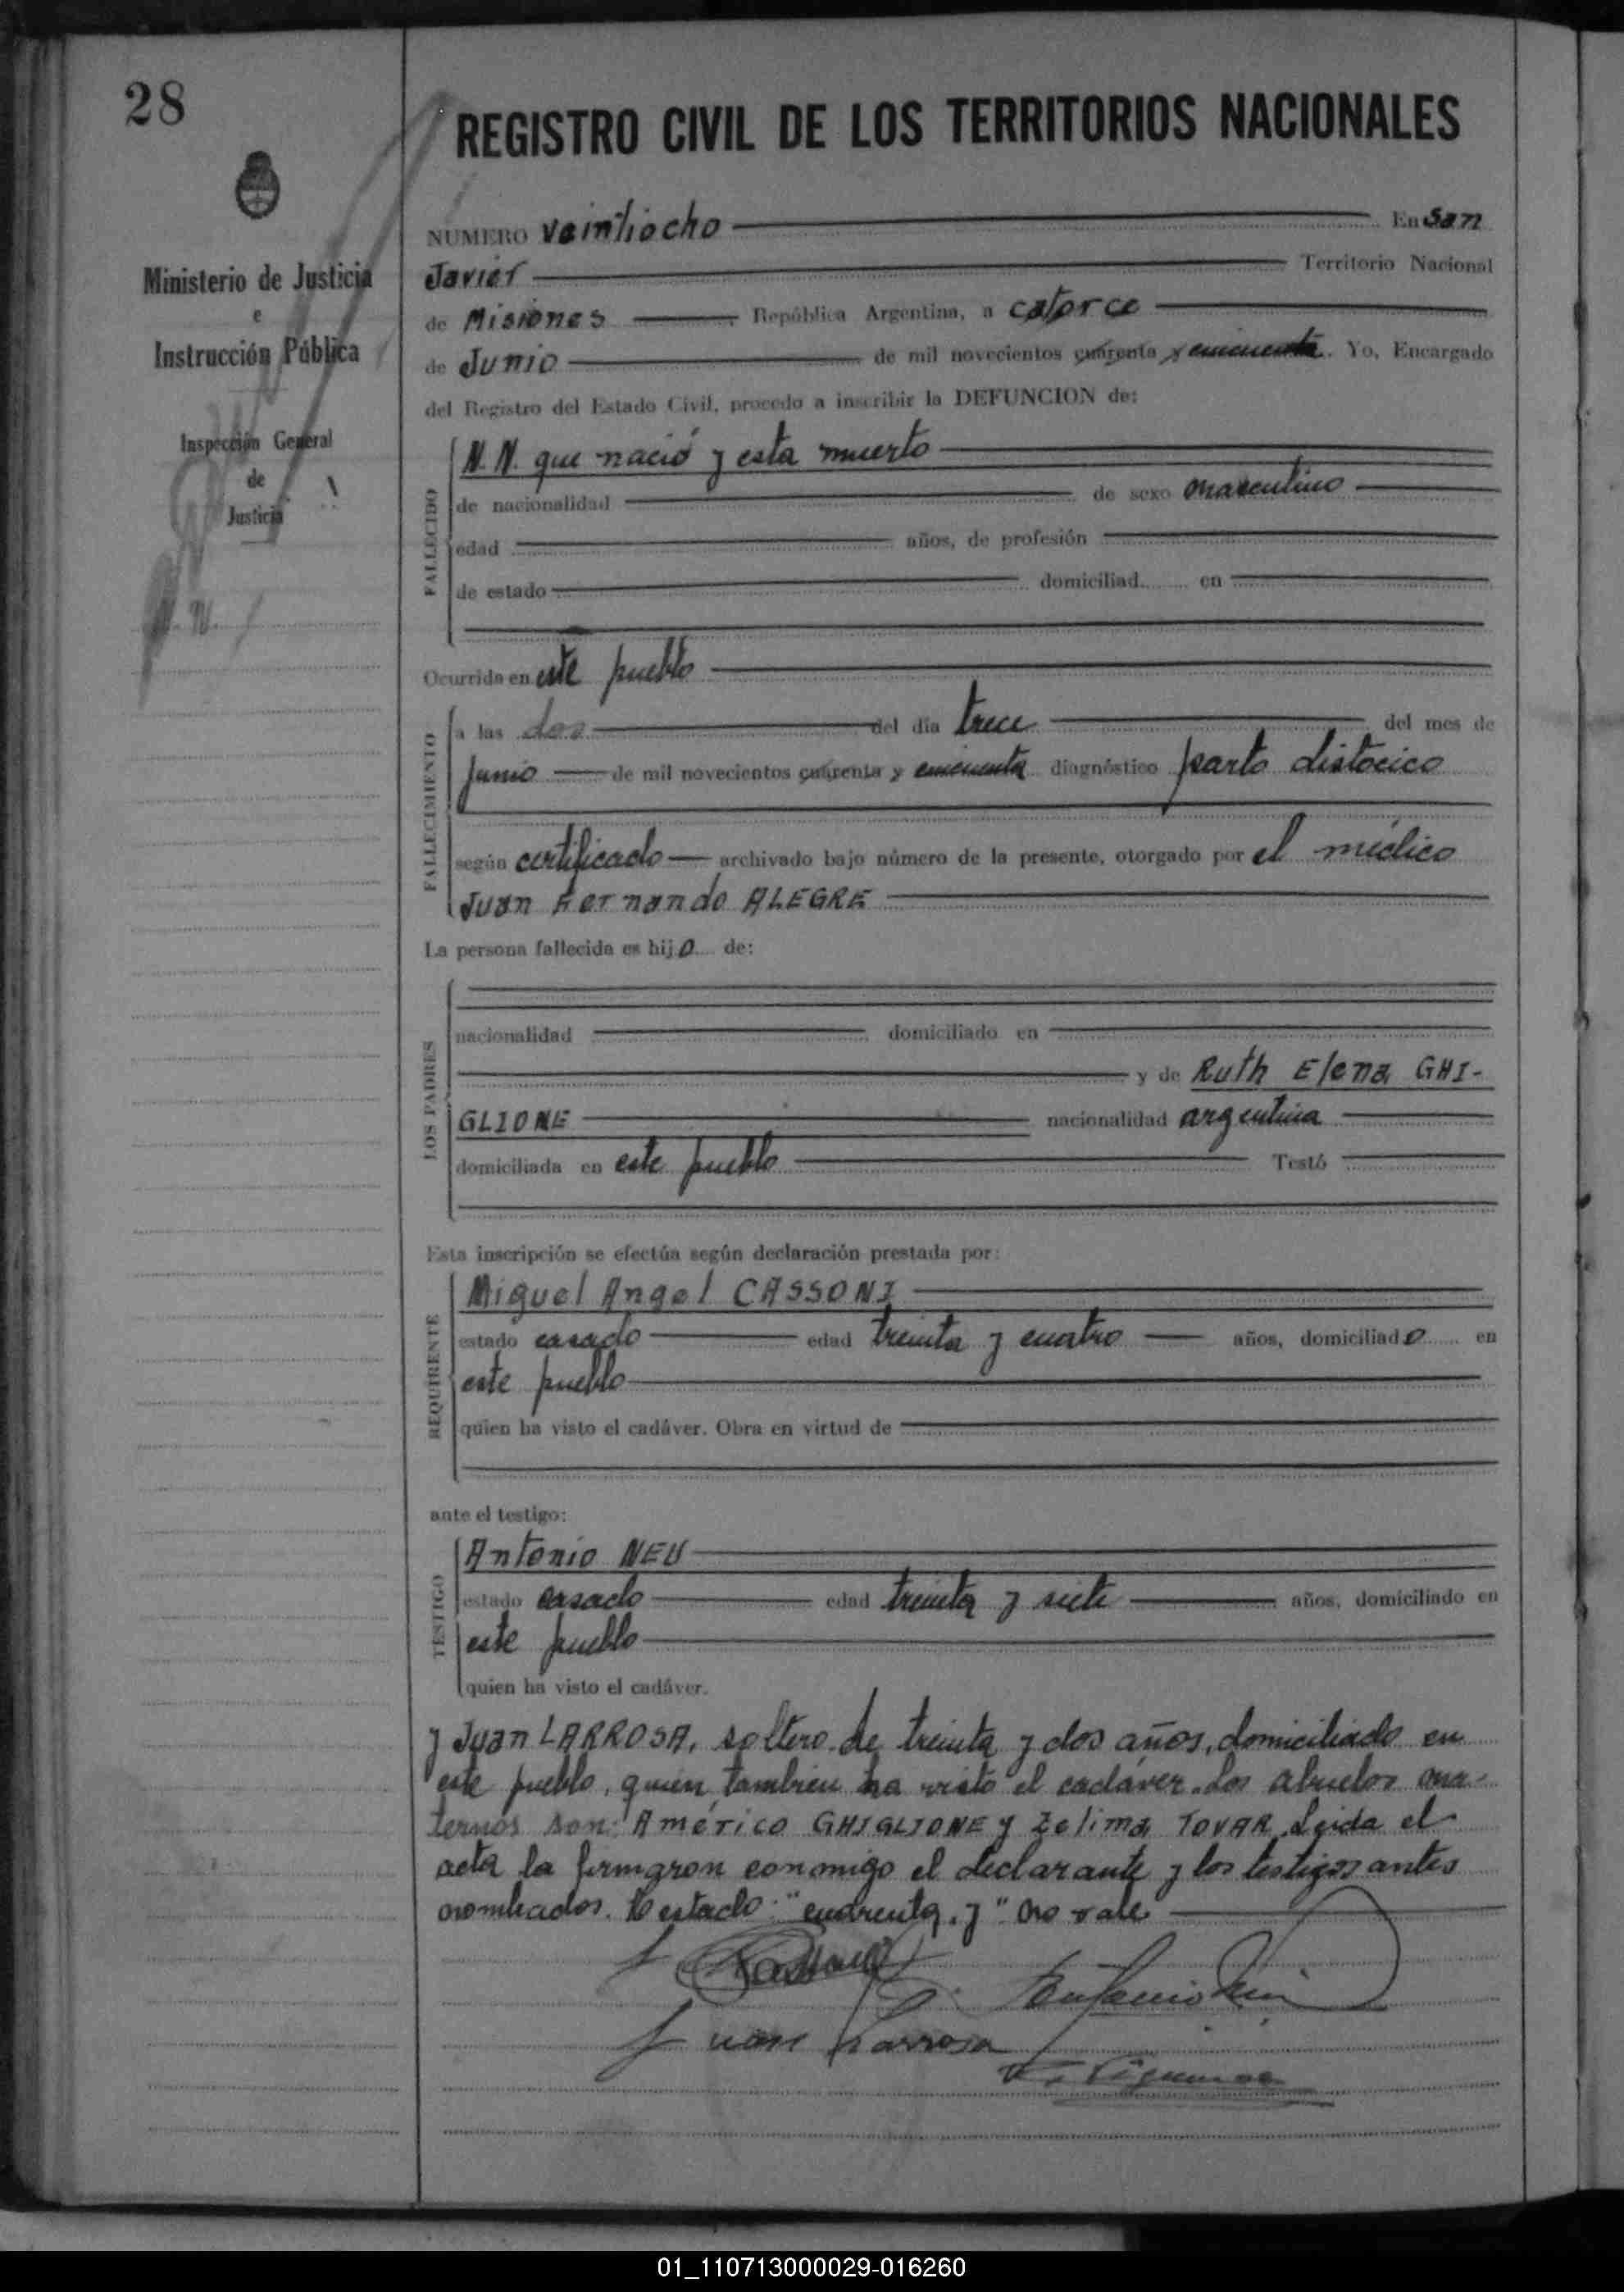 28
Ministerio de Justicia
e
Instrucción Pública
Inspección General
de
Justicia
N. N.
REGISTRO CIVIL DE LOS TERRITORIOS NACIONALES
NUMERO veintiocho En San
Javier Territorio Nacional
de Misiones República Argentina, a catorce
de Junio de mil novecientos cuarenta y cincuenta. Yo, Encargado
del Registro del Estado Civil, procedo a inscribir la DEFUNCION de:
FALLECIDO
N. N. que nació y esta muerto
de nacionalidad de sexo masculino
edad años, de profesión
de estado domiciliad en
Ocurrida en este pueblo
FALLECIMIENTO
a las dos del día trece del mes de
junio de mil novecientos cuarenta y cincuenta diagnóstico parto distócico
según certificado archivado bajo número de la presente, otorgado por el médico
Juan Fernando ALEGRE
La persona fallecida es hijo de:
LOS PADRES
nacionalidad domiciliado en
y de Ruth Elena GHI-
GLIONE nacionalidad argentina
domiciliada en este pueblo Testó
Esta inscripción se efectúa según declaración prestada por:
REQUIRENTE
Miguel Angel CASSONI
estado casado edad treinta y cuatro años, domiciliado en
este pueblo
quien ha visto el cadáver. Obra en virtud de
ante el testigo:
TESTIGO
Antonio NEU
estado casado edad treinta y siete años, domiciliado en
este pueblo
quien ha visto el cadáver.
y Juan LARROSA, soltero de treinta y dos años, domiciliado en
este pueblo, quien tambien ha visto el cadáver. Los abuelos ma-
ternos son: Américo GHIGLIONE y Zelima TOVAR. Leida el
acta la firmaron conmigo el declarante y los testigos antes
nombrados. Testado: "cuarenta y" no vale
Juan Larrosa
01_110713000029-016260